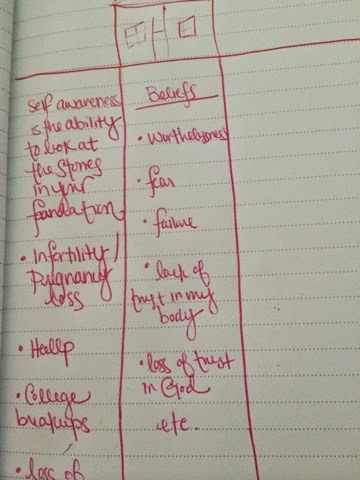 Self awareness
is the ability
to look at
the stones
in your
foundation
• Infertility/
Pregnancy
loss
•
• College
breakups
• loss of
Beliefs
• worthlessness
• fear
• failure
• lack of
trust in my
body
• loss of trust
in God
etc..